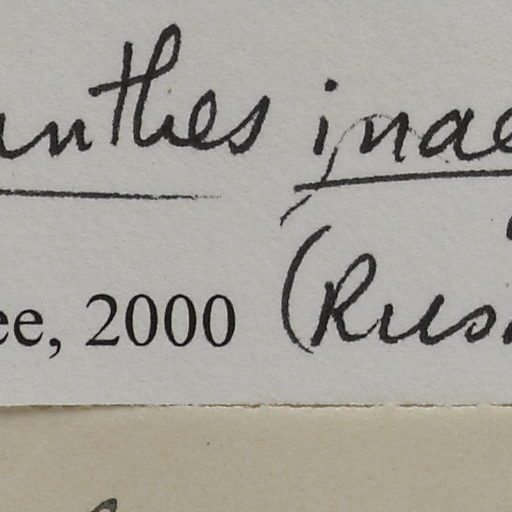 unthes inae
ee, 2000 (Rus